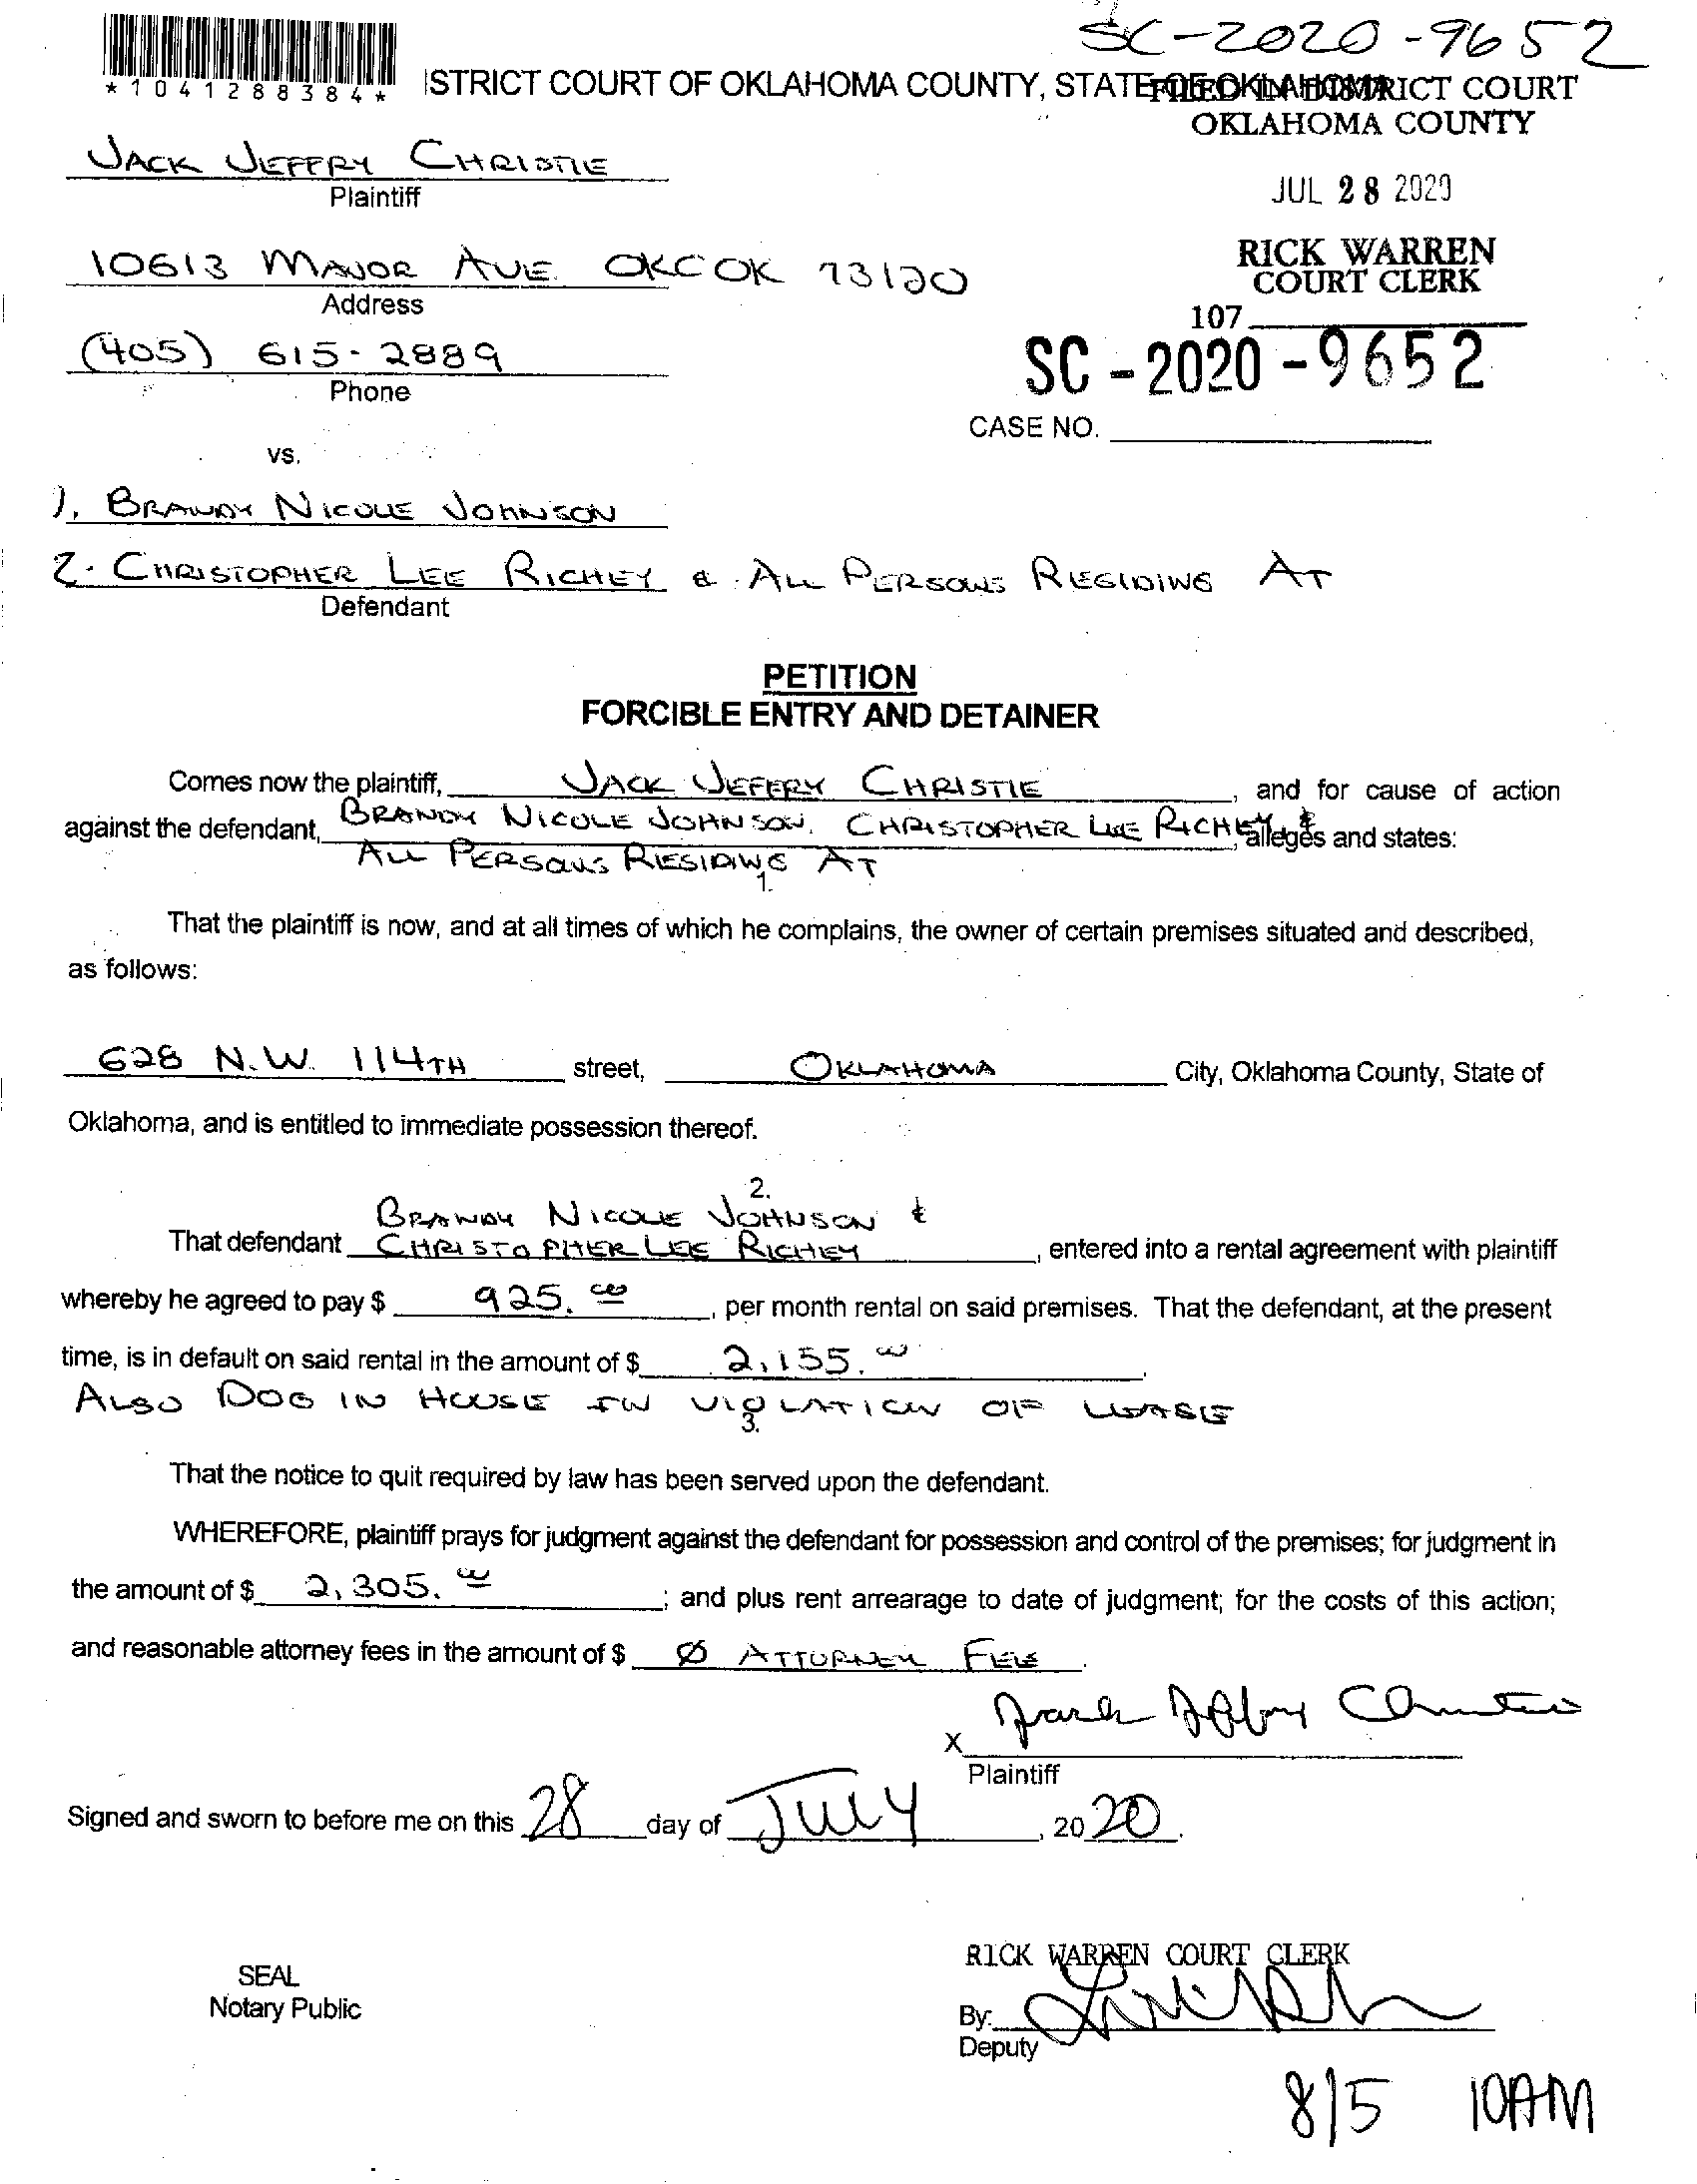 SC-2020-9652
*1041288384*
ISTRICT COURT OF OKLAHOMA COUNTY, STATE OF OKLAHOMA
FILED IN DISTRICT COURT
OKLAHOMA COUNTY
JACK JEFFRY CHRISTIE
Plaintiff
JUL 28 2020
10613 MAJOR AVE. OKC OK 73120
Address
RICK WARREN
COURT CLERK
107
(405) 615-2889
Phone
SC-2020-9652
CASE NO.
vs.
1. BRANDY NICOLE JOHNSON
2. CHRISTOPHER LEE RICHEY & ALL PERSONS RESIDING AT
Defendant
PETITION
FORCIBLE ENTRY AND DETAINER
Comes now the plaintiff, JACK JEFFRY CHRISTIE, and for cause of action
against the defendant, BRANDY NICOLE JOHNSON, CHRISTOPHER LEE RICHEY & alleges and states:
ALL PERSONS RESIDING AT
1.
That the plaintiff is now, and at all times of which he complains, the owner of certain premises situated and described,
as follows:
628 N.W. 114TH street, OKLAHOMA City, Oklahoma County, State of
Oklahoma, and is entitled to immediate possession thereof.
2.
BRANDY NICOLE JOHNSON &
That defendant CHRISTOPHER LEE RICHEY, entered into a rental agreement with plaintiff
whereby he agreed to pay $ 925.00, per month rental on said premises. That the defendant, at the present
time, is in default on said rental in the amount of $ 2,155.00.
ALSO DOG IN HOUSE IN VIOLATION OF LEASE
3.
That the notice to quit required by law has been served upon the defendant.
WHEREFORE, plaintiff prays for judgment against the defendant for possession and control of the premises; for judgment in
the amount of $ 2,305.00; and plus rent arrearage to date of judgment; for the costs of this action;
and reasonable attorney fees in the amount of $ Ø ATTORNEY FEES.
X Jack Jeffry Christie
Plaintiff
Signed and sworn to before me on this 28 day of July, 2020.
RICK WARREN COURT CLERK
SEAL
Notary Public
By:
Deputy
8/5 10AM